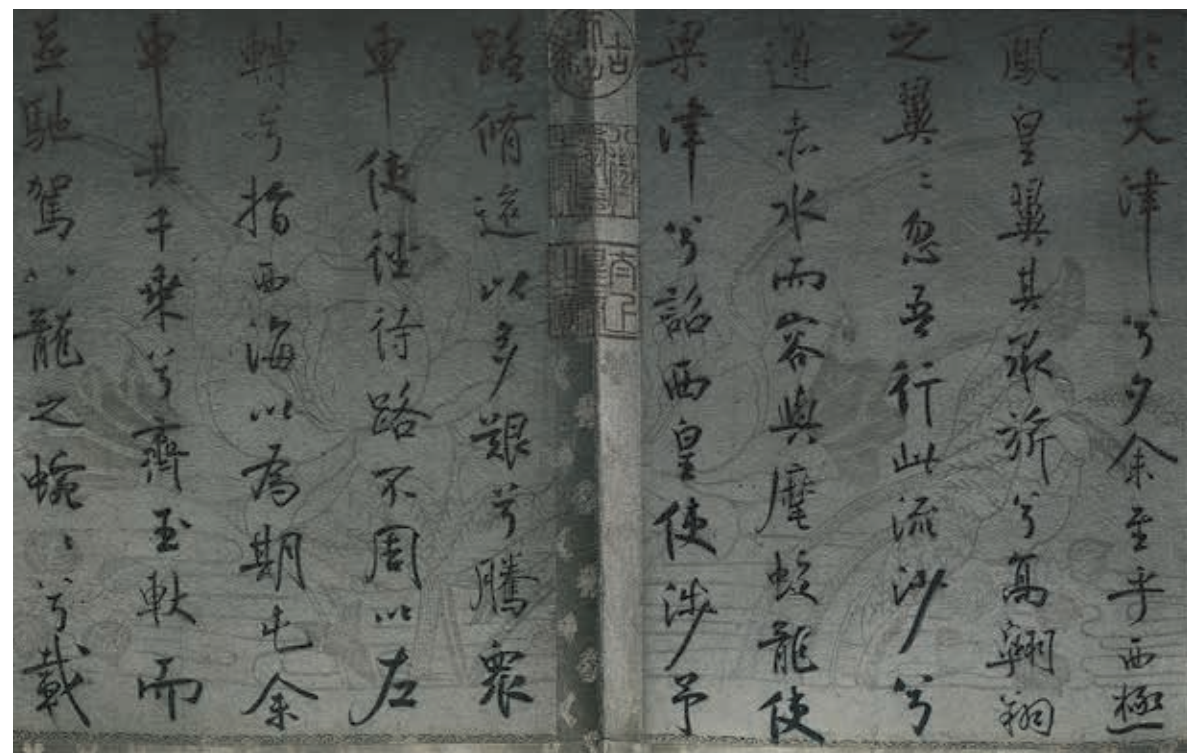 於天津兮夕余至乎西極
鳳皇翼其承旂兮高翱翔
之翼〻忽吾行此流沙兮
遵赤水而容與麾蛟龍使
梁津兮詔西皇使涉予
路脩遠以多艱兮騰衆
車使徑待路不周以左
轉兮指西海以為期屯余
車其千乘兮齊玉軑而
並馳駕八龍之蜿〻兮載